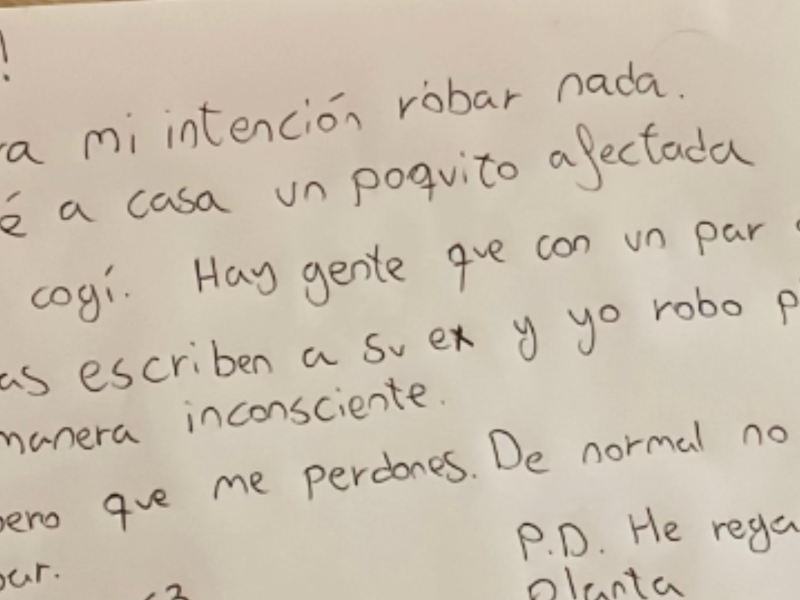 !
mi intención robar nada.
é a casa un poquito afectada
cogí. Hay gente que con un par
escriben a su ex y yo robo
manera inconsciente.
que me perdones. De normal no
P.D. He
planta